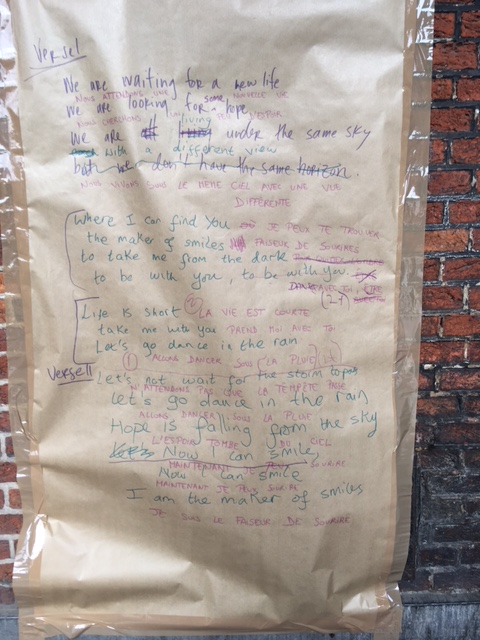 Verse I
We are waiting for a new life
NOUS ATTENDONS UNE NOUVELLE VIE
We are looking for some hope
NOUS CHERCHONS UN PEU D'ESPOIR
We are living under the same sky
with a different view
but we don't have the same horizon.
NOUS VIVONS SOUS LE MÊME CIEL AVEC UNE VUE
DIFFÉRENTE
Where I can find You OÙ JE PEUX TE TROUVER
the maker of smiles FAISEUR DE SOURIRES
to take me from the dark
to be with you, to be with you
AVEC TOI, ÊTRE
(2x)
Life is short (2) LA VIE EST COURTE
take me with you PRENDS MOI AVEC TOI
Let's go dance in the rain
(1) ALLONS DANCER SOUS (LA PLUIE) (2x)
Verse II Let's not wait for the storm to pass
N'ATTENDONS PAS QUE LA TEMPÊTE PASSE
Let's go dance in the rain
ALLONS DANCER SOUS LA PLUIE
Hope is falling from the sky
L'ESPOIR TOMBE DU CIEL
Now I can smile,
MAINTENANT JE PEUX SOURIRE
Now I can smile
MAINTENANT JE PEUX SOURIRE
I am the maker of smiles
JE SUIS LE FAISEUR DE SOURIRE